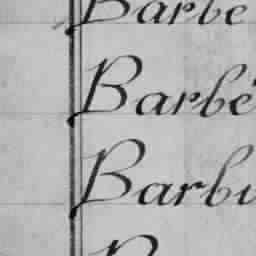 Barbe
Barbé
Barbi